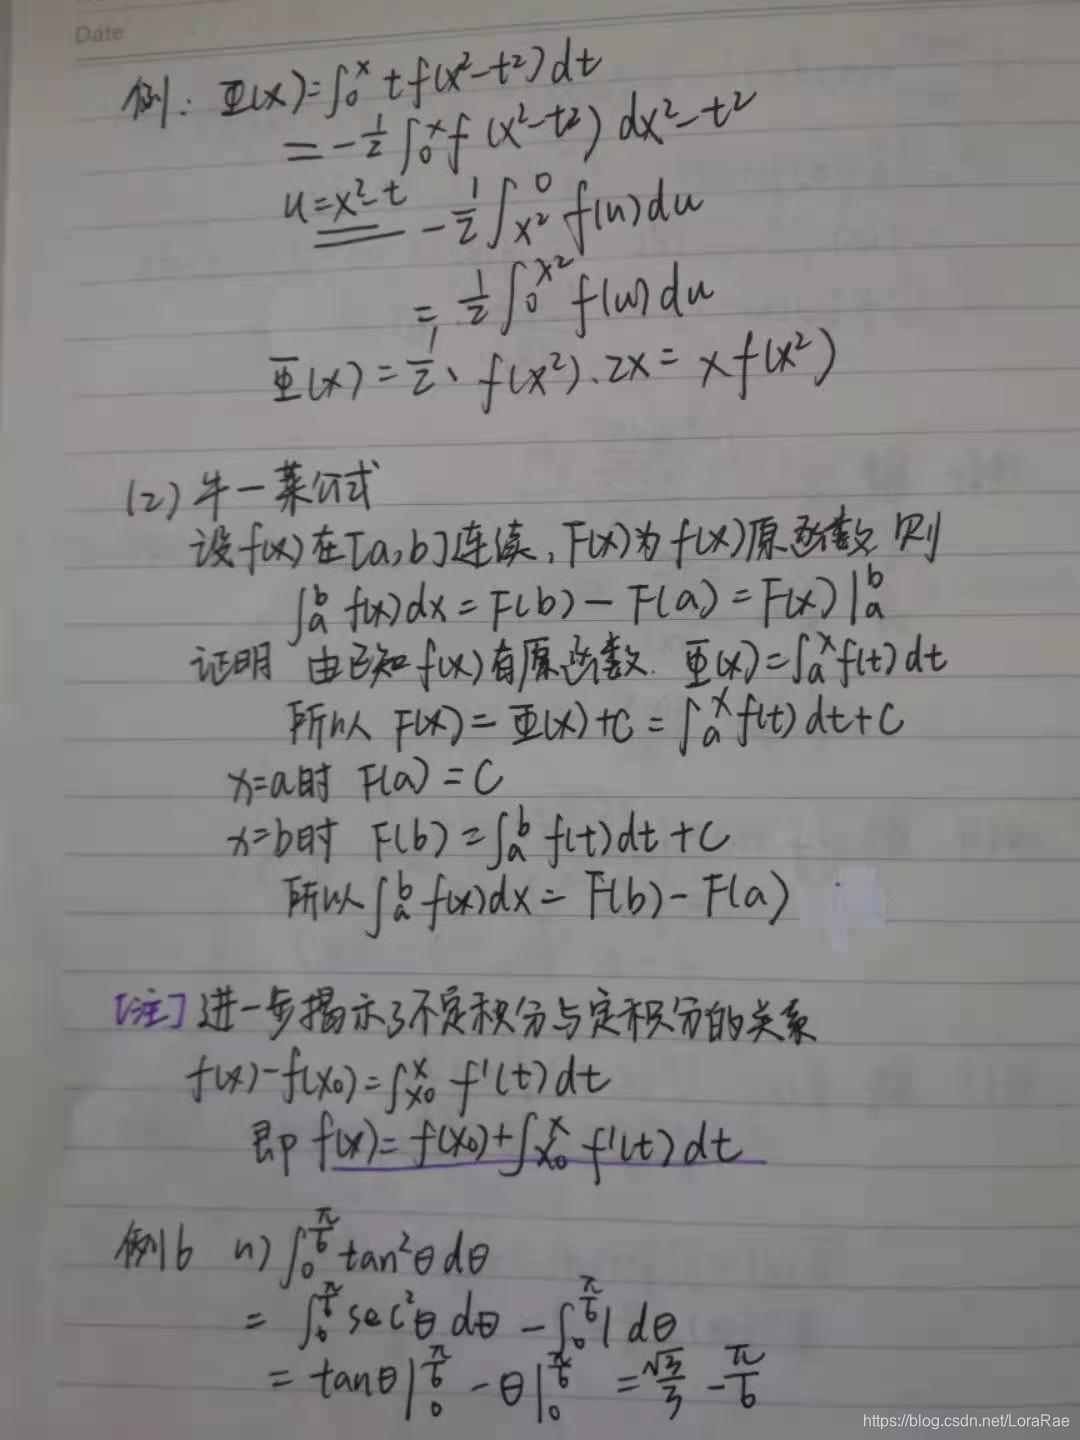 Date
例: Φ(x)=∫₀ˣ t f(x²-t²) dt
= -1/2 ∫₀ˣ f (x²-t²) dx²-t²
u=x²-t -1/2 ∫_{x²}^{0} f(u) du
= 1/2 ∫₀^{x²} f(u) du
Φ(x) = 1/2 · f(x²) · 2x = x f(x²)
(2) 牛一莱公式
设 f(x) 在 [a,b] 连续, F(x) 为 f(x) 原函数 则
∫ₐᵇ f(x) dx = F(b) - F(a) = F(x) |ₐᵇ
证明 由已知 f(x) 有原函数. Φ(x) = ∫ₐˣ f(t) dt
所以 F(x) = Φ(x) + C = ∫ₐˣ f(t) dt + C
x=a时 F(a) = C
x=b时 F(b) = ∫ₐᵇ f(t) dt + C
所以 ∫ₐᵇ f(x) dx = F(b) - F(a)
[注] 进一步揭示了不定积分与定积分的关系
f(x) - f(x₀) = ∫_{x₀}^{x} f'(t) dt
即 f(x) = f(x₀) + ∫_{x₀}^{x} f'(t) dt
例6 (1) ∫₀^{π/6} tan²θ dθ
= ∫₀^{π/6} sec²θ dθ - ∫₀^{π/6} 1 dθ
= tanθ |₀^{π/6} - θ |₀^{π/6} = √3/3 - π/6
https://blog.csdn.net/LoraRae